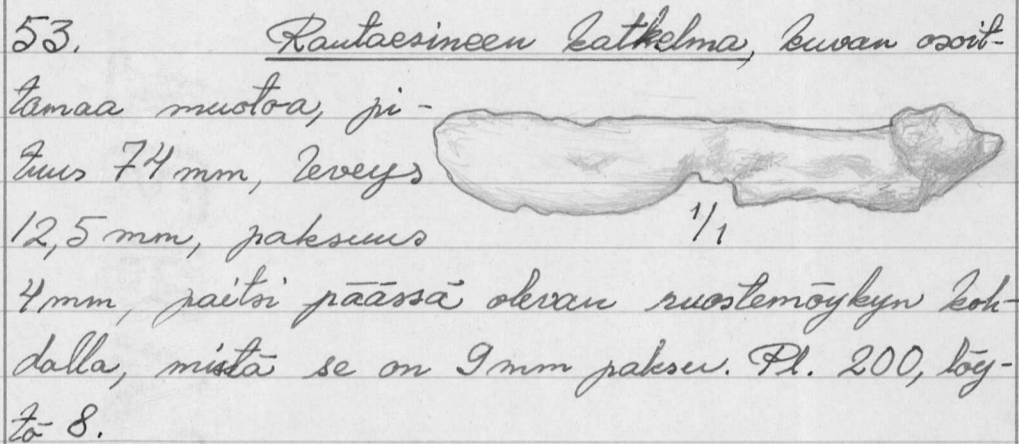 53. Rautaesineen katkelma, kuvan osoit-
tamaa muotoa, pi-
tuus 74 mm, leveys
12,5 mm, paksuus
1/1
4 mm, paitsi päässä olevan ruostemöykyn koh-
dalla, mistä se on 9 mm paksu. Pl. 200, löy-
tö 8.